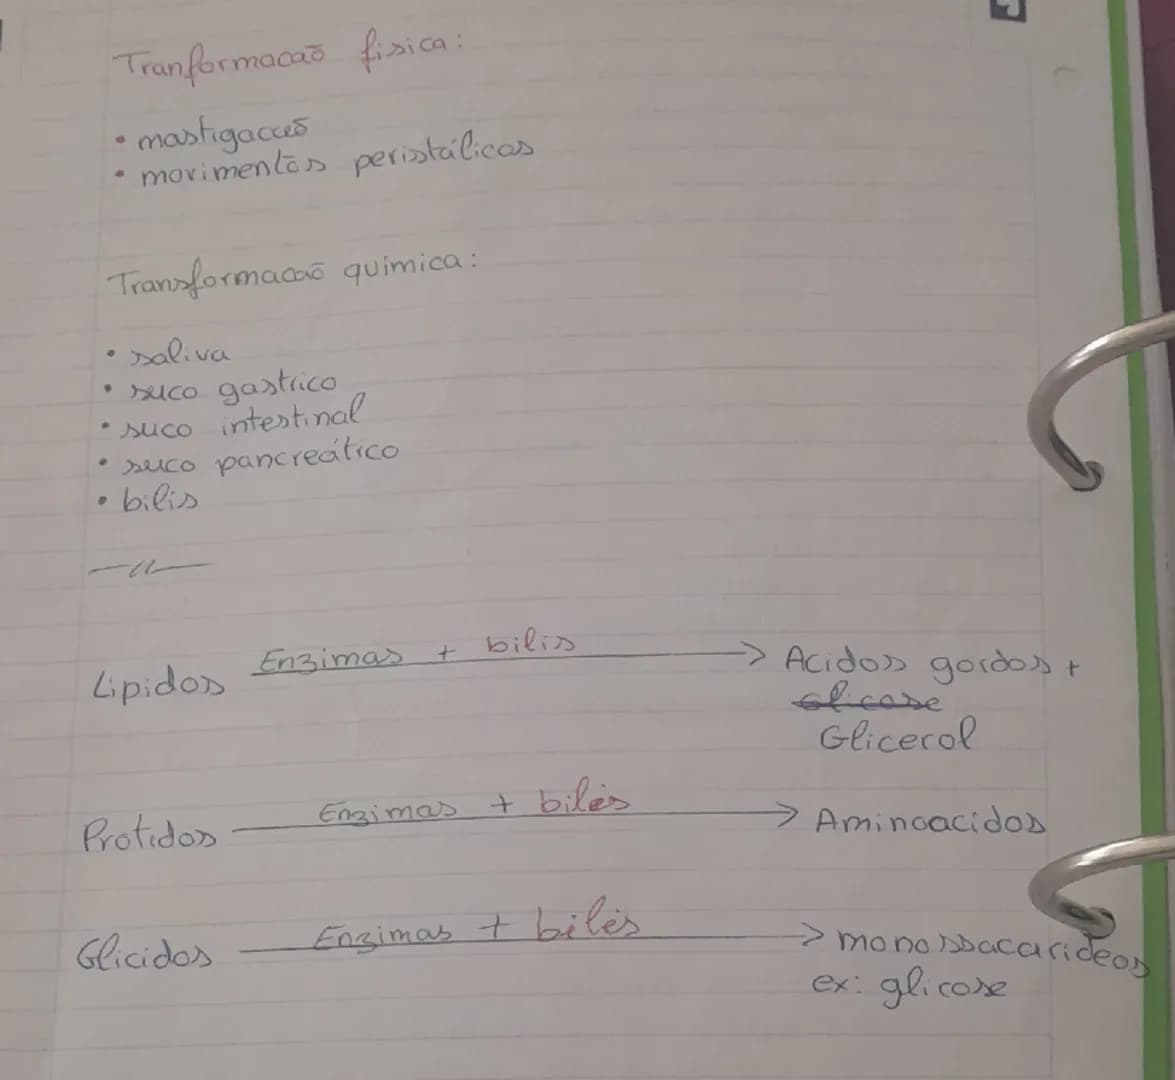 Tranformacaõ fisica:
• mastigacceõ
• movimentōs peristálicos
Transformacaõ quimica:
• saliva
• suco gastrico
• suco intestinal
• suco pancreático
• bilis
—11—
Lipidos Enzimas + bilis → Acidos gordos +
glicose
Glicerol
Protidos Enzimas + bilés → Aminoacidos
Glicidos Enzimas + bilés → monossacarideos
ex: glicose